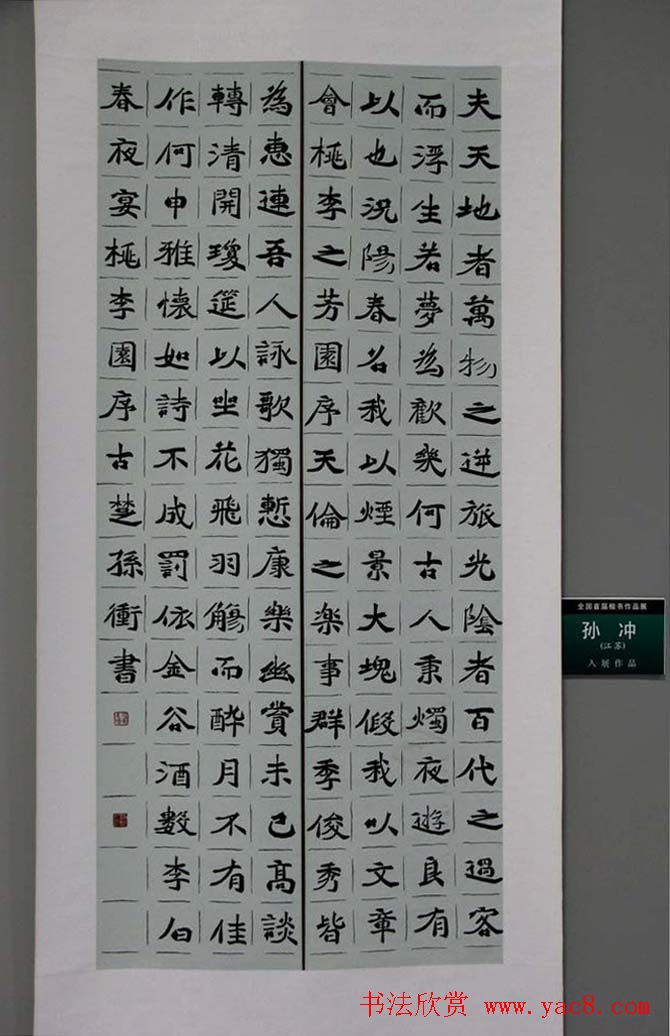 夫天地者萬物之逆旅光陰者百代之過客
而浮生若夢為歡幾何古人秉燭夜遊良有
以也況陽春召我以煙景大塊假我以文章
會桃李之芳園序天倫之樂事群季俊秀皆
為惠連吾人詠歌獨慙康樂幽賞未已高談
轉清開瓊筵以坐花飛羽觴而醉月不有佳
作何申雅懷如詩不成罰依金谷酒數李白
春夜宴桃李園序古楚孫衝書
全国首届楷书作品展
孙 冲
(江苏)
入展作品
书法欣赏 www.yac8.com